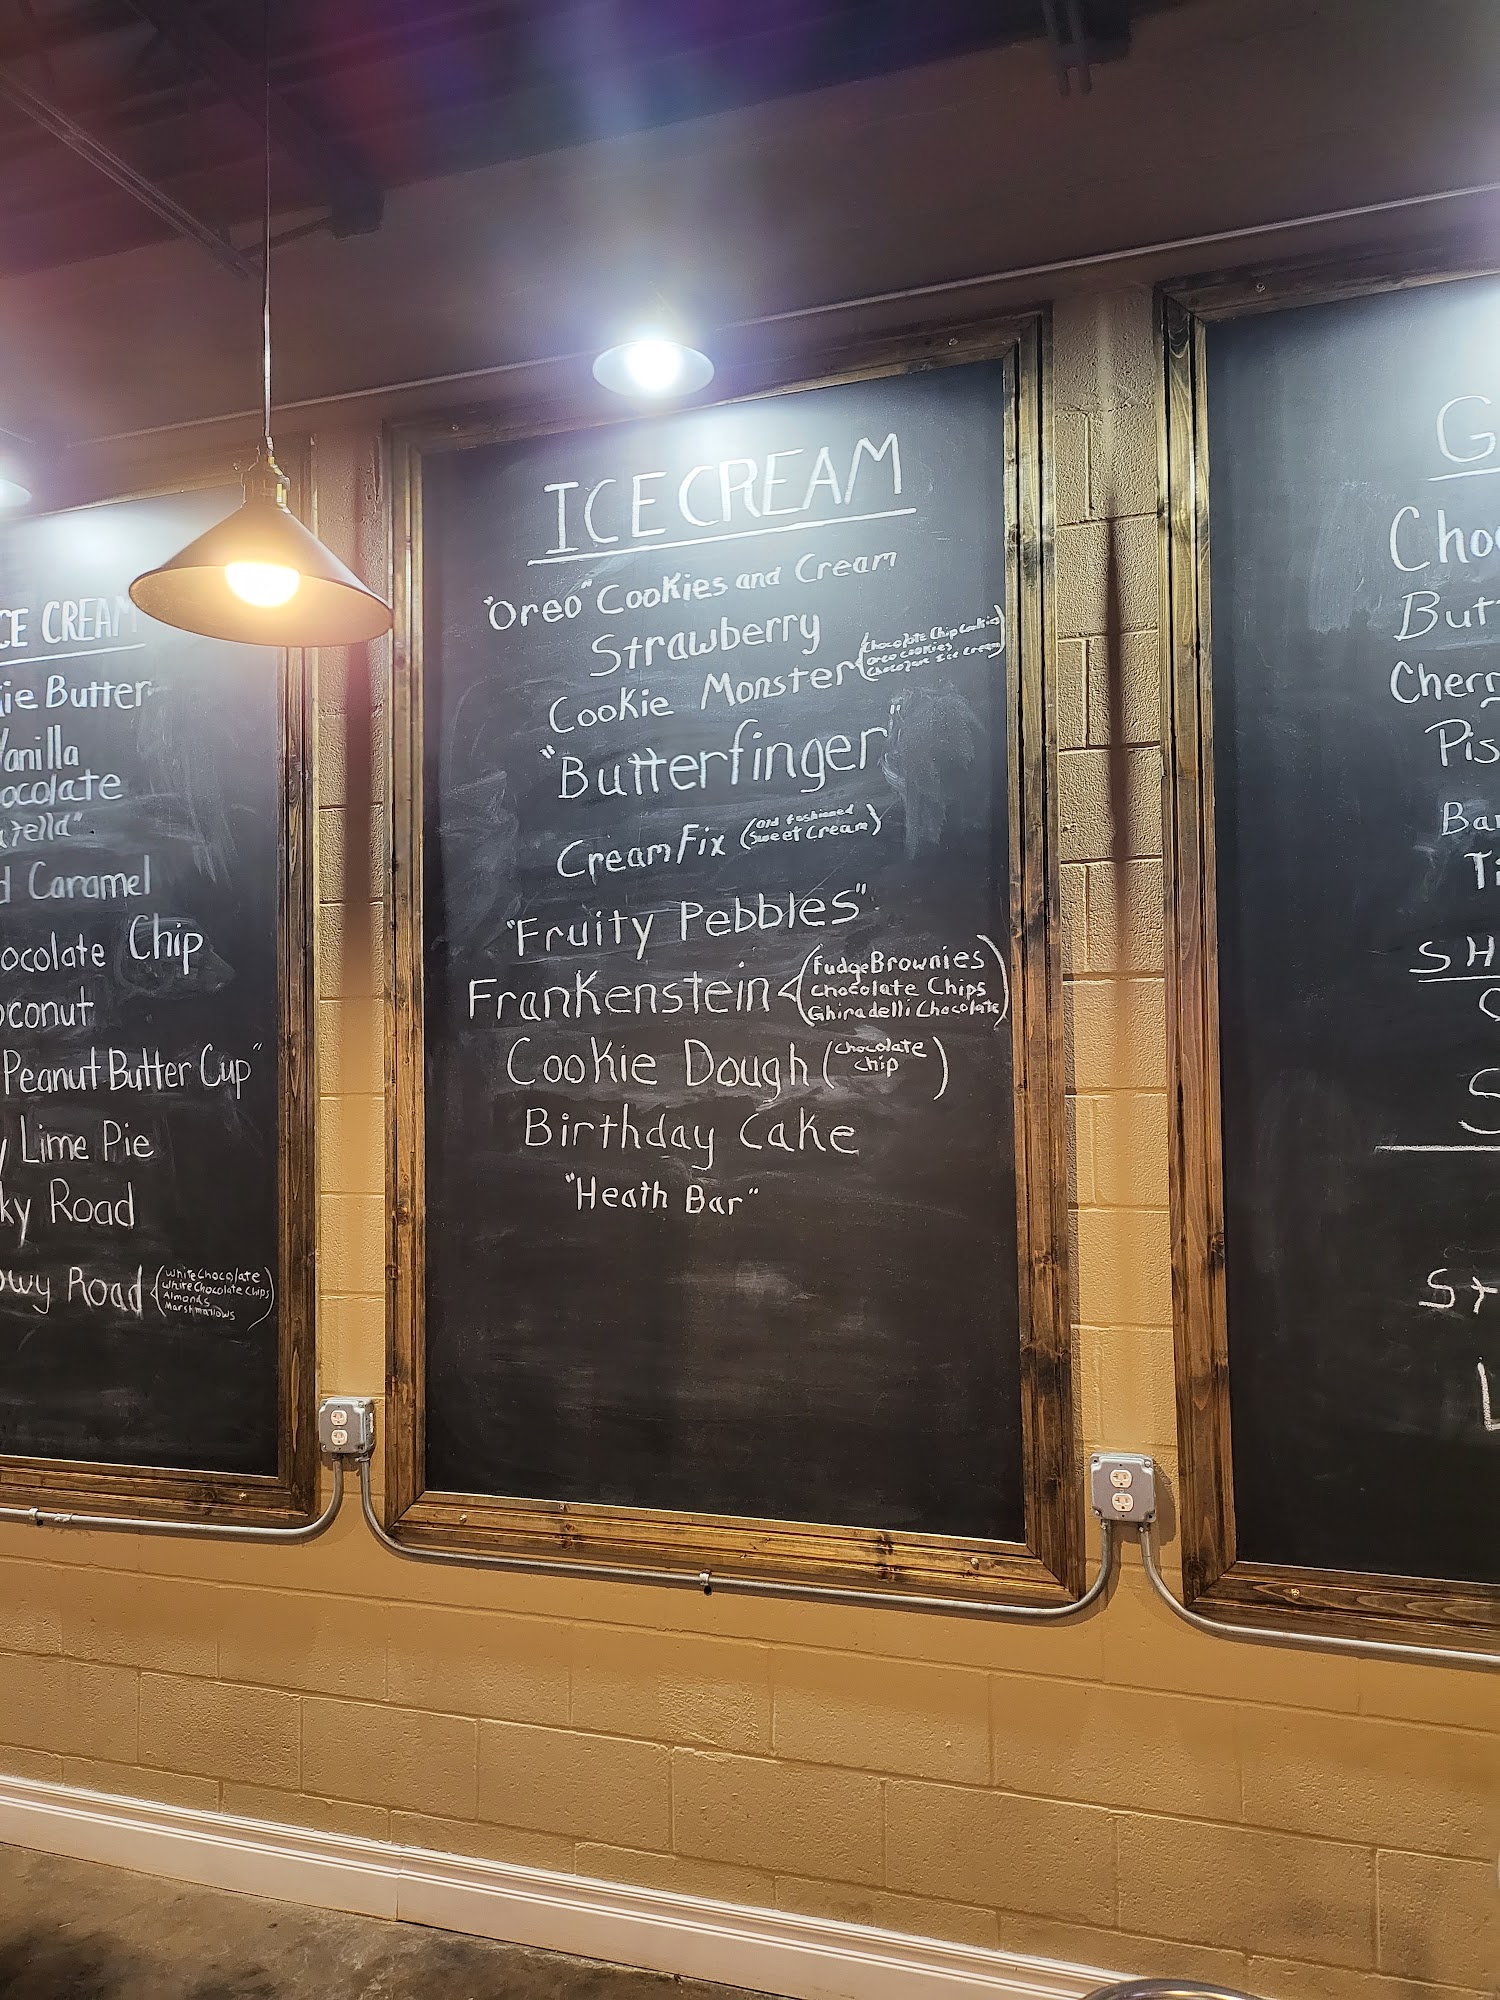 CE CREAM
ie Butter
Vanilla
ocolate
tella"
d Caramel
ocolate Chip
oconut
Peanut Butter Cup"
y Lime Pie
ky Road
owy Road (White Chocolate
White Chocolate Chips
Almonds
Marshmallows)
ICE CREAM
"Oreo" Cookies and Cream
Strawberry
Cookie Monster (Chocolate Chip Cookies
Oreo Cookies
Chocolate Ice Cream)
"Butterfinger"
Cream Fix (Old fashioned
Sweet Cream)
"Fruity Pebbles"
Frankenstein (Fudge Brownies
Chocolate Chips
Ghiradelli Chocolate)
Cookie Dough (Chocolate
Chip)
Birthday Cake
"Heath Bar"
G
Cho
But
Cherr
Pis
Ba
Ti
SH
S
St
L